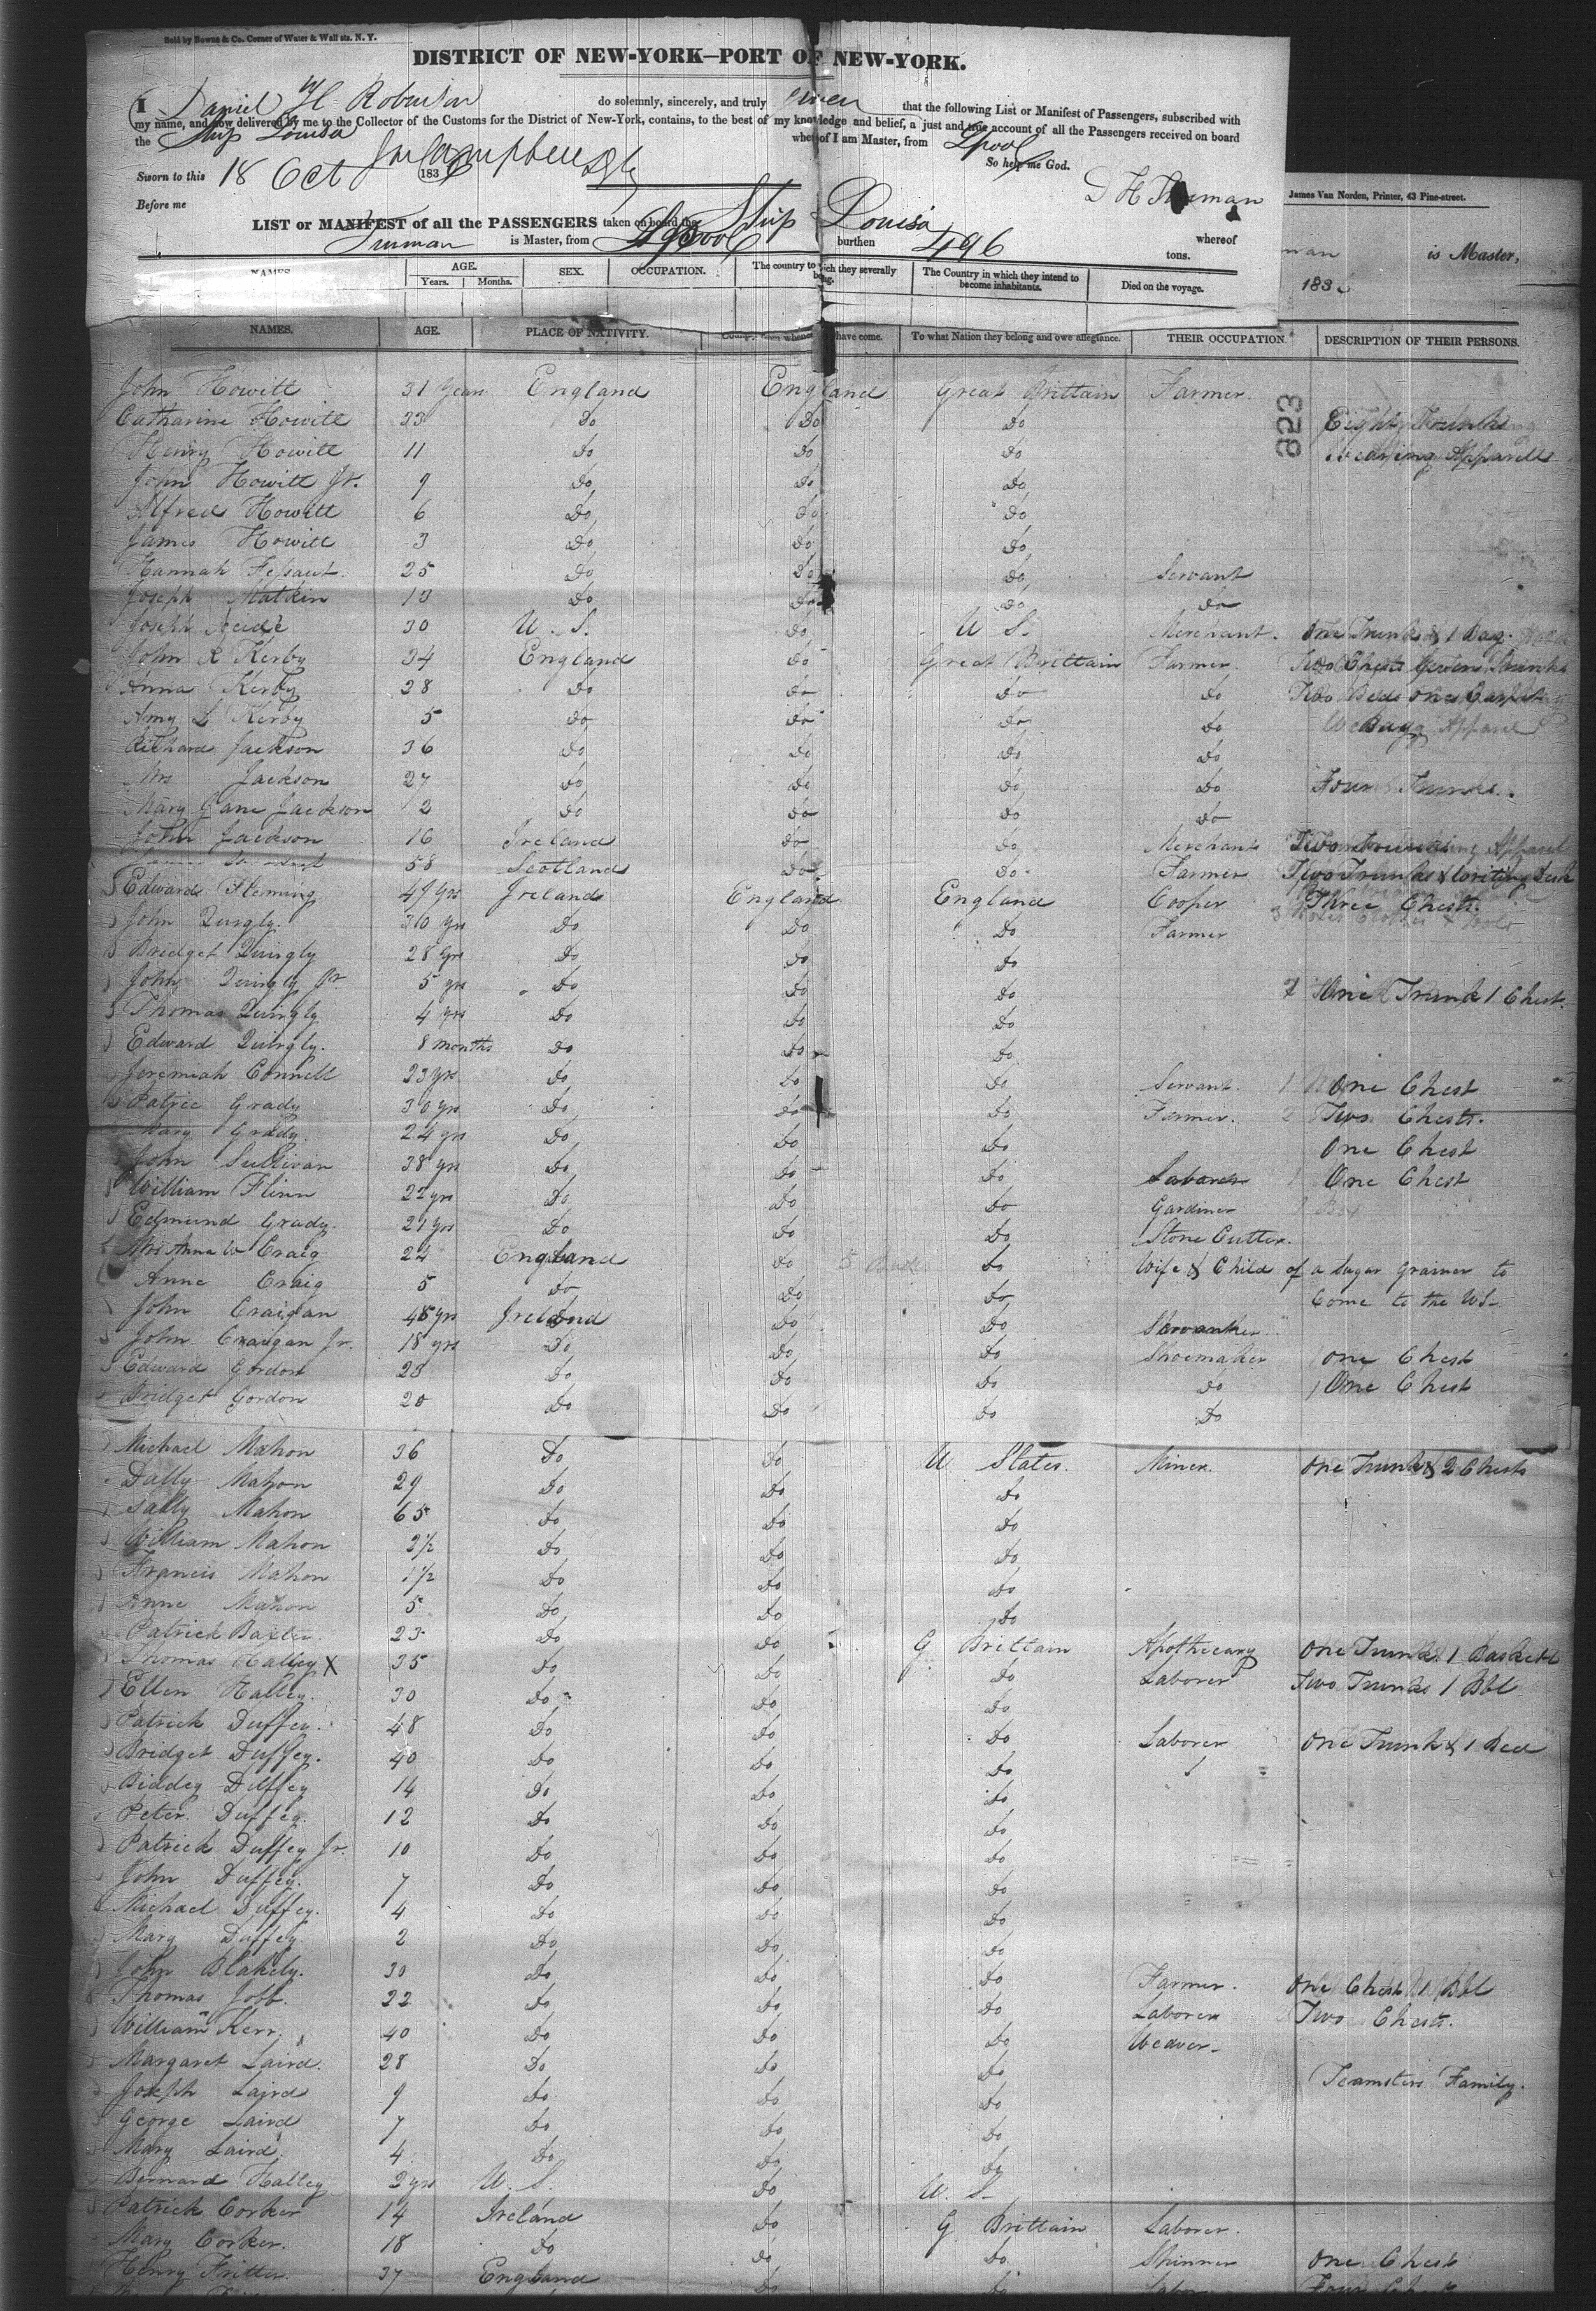 Sold by Bowne & Co. Corner of Water & Wall sts. N. Y.
DISTRICT OF NEW-YORK—PORT OF NEW-YORK.
I Daniel H. do solemnly, sincerely, and truly swear that the following List or Manifest of Passengers, subscribed with
my name, and now delivered by me to the Collector of the Customs for the District of New-York, contains, to the best of my knowledge and belief, a just and true account of all the Passengers received on board
the Ship Louisa whereof I am Master, from Lpool
So help me God.
Sworn to this 18 Oct 1836
Before me
D H Truman
James Van Norden, Printer, 43 Pine-street.
LIST or MANIFEST of all the PASSENGERS taken on board the Ship Louisa whereof
Truman is Master, from Liverpool burthen 496 tons.
is Master,
183
NAMES. AGE. Years. Months. SEX. OCCUPATION. The country to which they severally belong. The Country in which they intend to become inhabitants. Died on the voyage.
NAMES. AGE. PLACE OF NATIVITY. Country from whence have come. To what Nation they belong and owe allegiance. THEIR OCCUPATION. DESCRIPTION OF THEIR PERSONS.
John Howitt 31 Years England England Great Brittain Farmer.
823
Catharine Howitt 33 Do Do Do Eight Trunks
Henry Howitt 11 Do Do Do Wearing Apparell
John Howitt Jr. 9 Do Do Do
Alfred Howitt 6 Do Do Do
James Howitt 3 Do Do Do
Hannah 25 Do Do Do Servant
Joseph Matkin 13 Do Do Do do
Joseph 30 U. S. Do U S. Merchant. One Trunk & 1 Bag.
John R Kerby 34 England Do Great Brittain Farmer. Two Chests Seven Trunks
Anna Kerby 28 Do Do Do Do Two Beds One Carpet
Amy L Kerby 5 Do Do Do Do Bagg
Richard Jackson 36 Do Do Do Do
Mrs Jackson 27 Do Do Do Do Four Trunks.
Mary Jane Jackson 2 Do Do Do Do
John Jackson 16 Ireland Do Do Merchant Two Trunks
58 Scotland Do Do Farmer Two Trunks & writing Desk
Edward Fleming 49 yrs Ireland England England Cooper Three Chests.
John Quigly. 30 yrs Do Do Do Farmer
Bridget Quigly 28 yrs Do Do Do
John Quigly Jr. 5 yrs Do Do Do One Trunk 1 Chest.
Thomas Quigly 4 yrs Do Do Do
Edward Quigly. 8 months Do Do Do
Jeremiah Connell 23 yrs Do Do Do Servant. 1 One Chest
Patric Grady 30 yrs Do Do Do Farmer. 2 Two Chests.
Mary Grady. 24 yrs Do Do Do One Chest
John Sullivan 38 yrs Do Do Do Laborer 1 One Chest
William Flinn 22 yrs Do Do Do Gardiner 1 Box
Edmund Grady. 21 yrs Do Do Do Stone Cutter.
Mrs Anna W Craig 24 England Do Do Wife & Child of a Sugar Grainer to
Anne Craig 5 Do Do Do Come to the US-
John Craigan 45 yrs Ireland Do Do
John Craigan Jr. 18 yrs Do Do Do Shoemaker 1 One Chest
Edward Gordon 23 Do Do Do do 1 One Chest
Bridget Gordon 20 Do Do Do Do
Michael Mahon 36 Do Do U States. Miner. One Trunk & 2 Chests
Dally Mahon 29 Do Do Do
Sally Mahon 65 Do Do Do
William Mahon 2½ Do Do Do
Francis Mahon 1½ Do Do Do
Anne Mahon 5 Do Do Do
Patrick Baxter. 23 Do Do G Brittain Apothecary One Trunk 1 Baskett
Thomas Halley X 35 Do Do Do Laborer Two Trunks 1 Bbl
Ellen Halley. 30 Do Do Do
Patrick Duffey. 48 Do Do Do Laborer One Trunk & 1 Bed
Bridget Duffey. 40 Do Do Do
Biddey Duffey 14 Do Do Do
Peter. Duffey. 12 Do Do Do
Patrick Duffey Jr. 10 Do Do Do
John Duffey. 7 Do Do Do
Michael Duffey. 4 Do Do Do
Mary Duffey 2 Do Do Do
John Blakely. 30 Do Do Do Farmer. One Chest 1 Bbl
Thomas Jobb. 22 Do Do Do Laborer Two Chests.
William Kerr 40 Do Do Do Weaver-
Margaret Laird. 28 Do Do Do Teamsters Family.
Joseph Laird 9 Do Do Do
George Laird 7 Do Do Do
Mary Laird 4 Do Do Do
Bernard Halley 2 yrs U. S. Do U. S-
Patrick Corker 14 Ireland Do G Brittain Laborer.
Mary Corker. 18 Do Do Do Spinner One Chest
Henry Fritter. 37 England Do Do